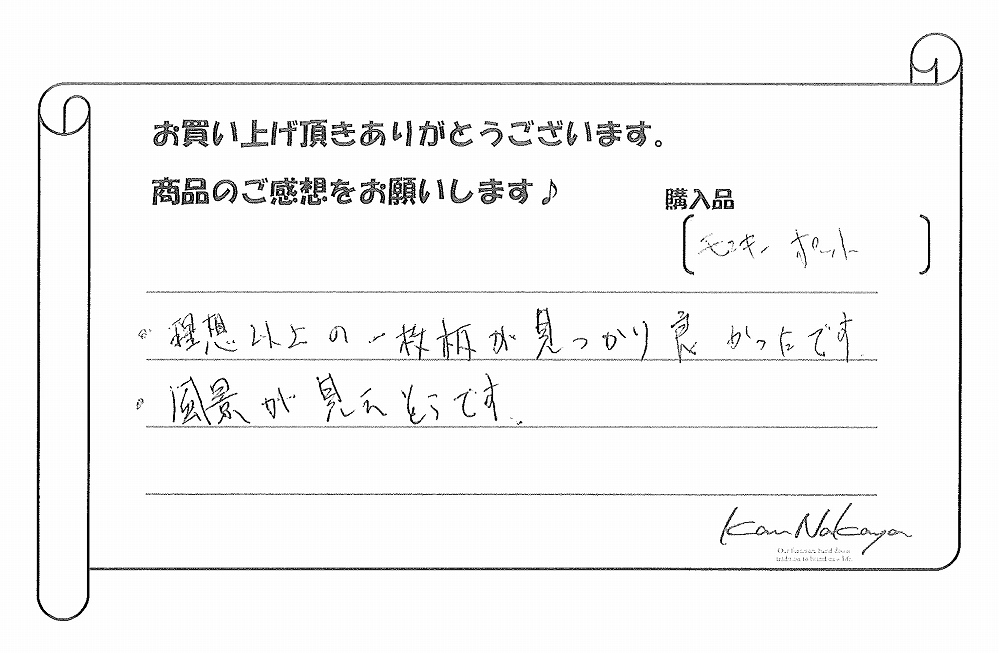 お買い上げ頂きありがとうございます。
商品のご感想をお願いします♪
購入品
モンキーポット
。理想以上の一枚板が見つかり良かったです
。風景が見えそうです。
Kan Nakaya